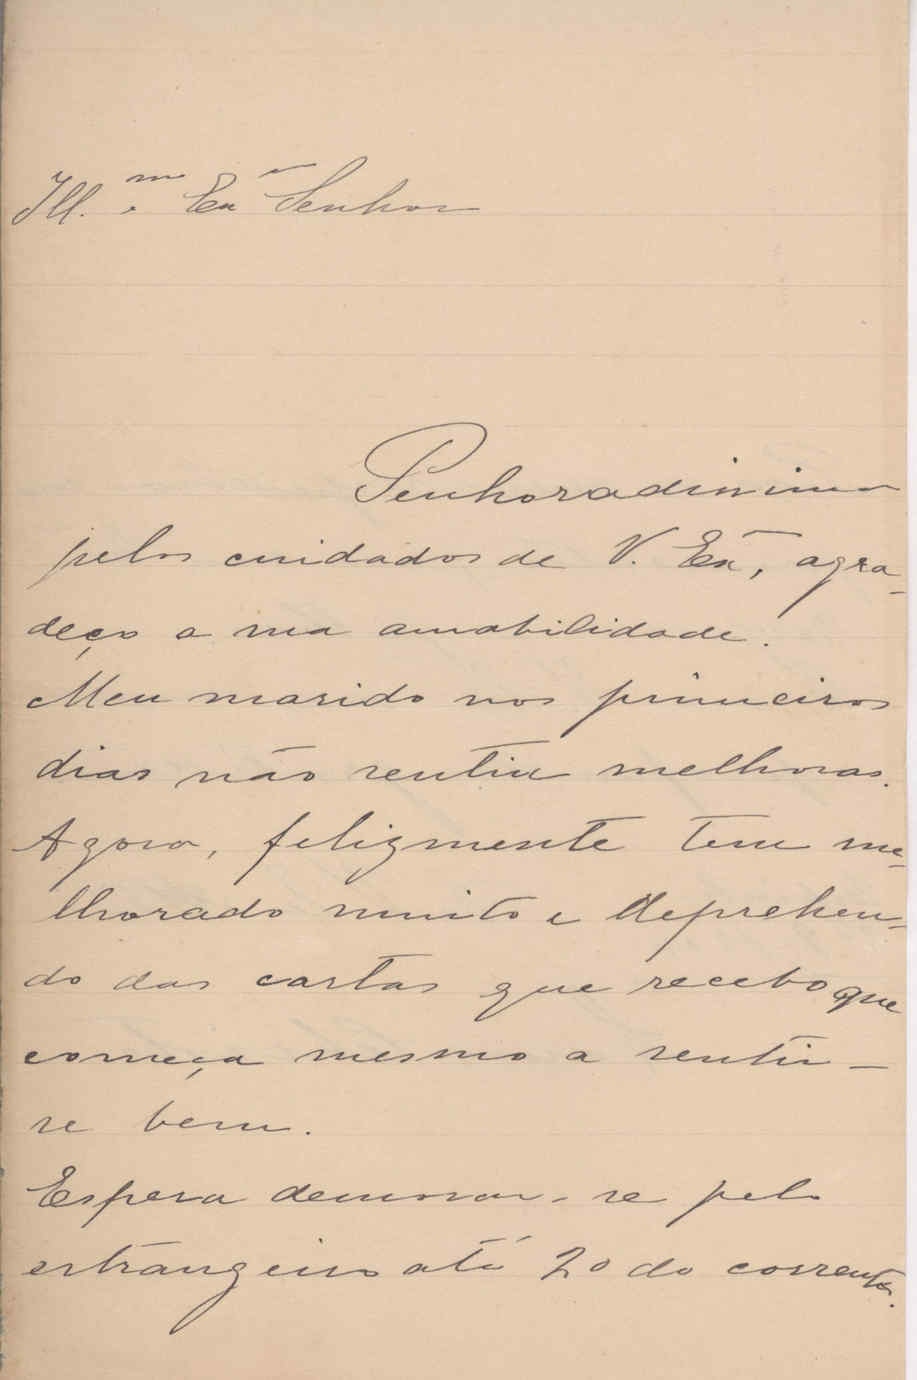 Ill.mo e Exmo Senhor
Penhoradissima
pelos cuidados de V. Exa, agra-
deço a sua amabilidade.
Meu marido nos primeiros
dias não sentiu melhoras.
Agora, felizmente tem me-
lhorado muito e deprehen-
do das cartas que recebo que
começa mesmo a sentir-
se bem.
Espera demorar-se pelo
estrangeiro até 20 do corrente.